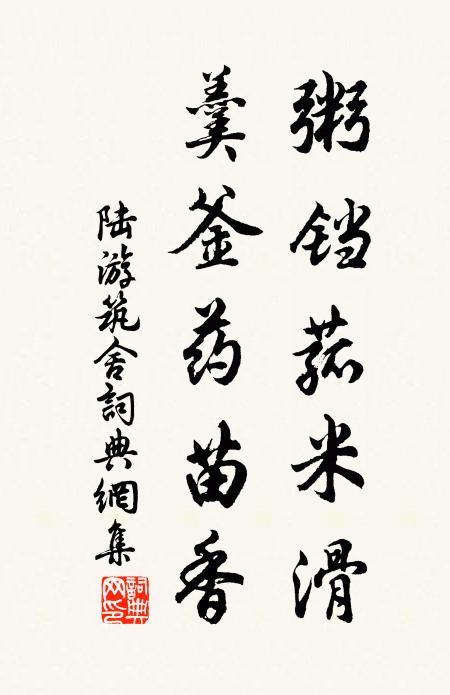 粥铛菰米滑
羹釜药苗香
陆游筑舍詞典網集
詞典网印